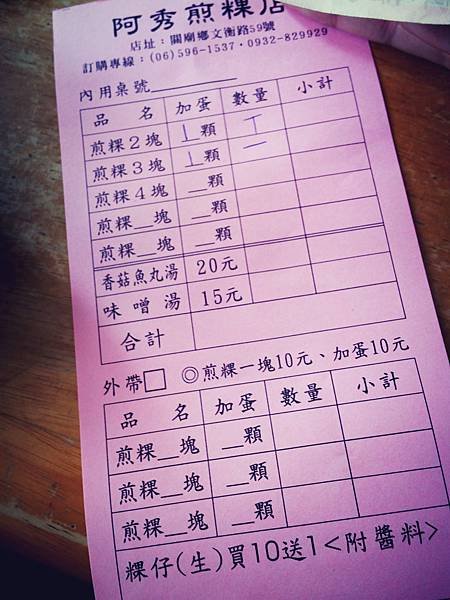 阿秀煎粿店
店址：關廟鄉文衡路59號
訂購專線：(06)596-1537·0932-829929
內用桌號
品名 加蛋 數量 小計
煎粿2塊 1顆 丅
煎粿3塊 1顆 一
煎粿4塊 __顆
煎粿__塊 __顆
煎粿__塊 __顆
香菇魚丸湯 20元
味噌湯 15元
合計
外帶□ ◎煎粿一塊10元、加蛋10元
品名 加蛋 數量 小計
煎粿__塊 __顆
煎粿__塊 __顆
煎粿__塊 __顆
粿仔(生)買10送1<附醬料>